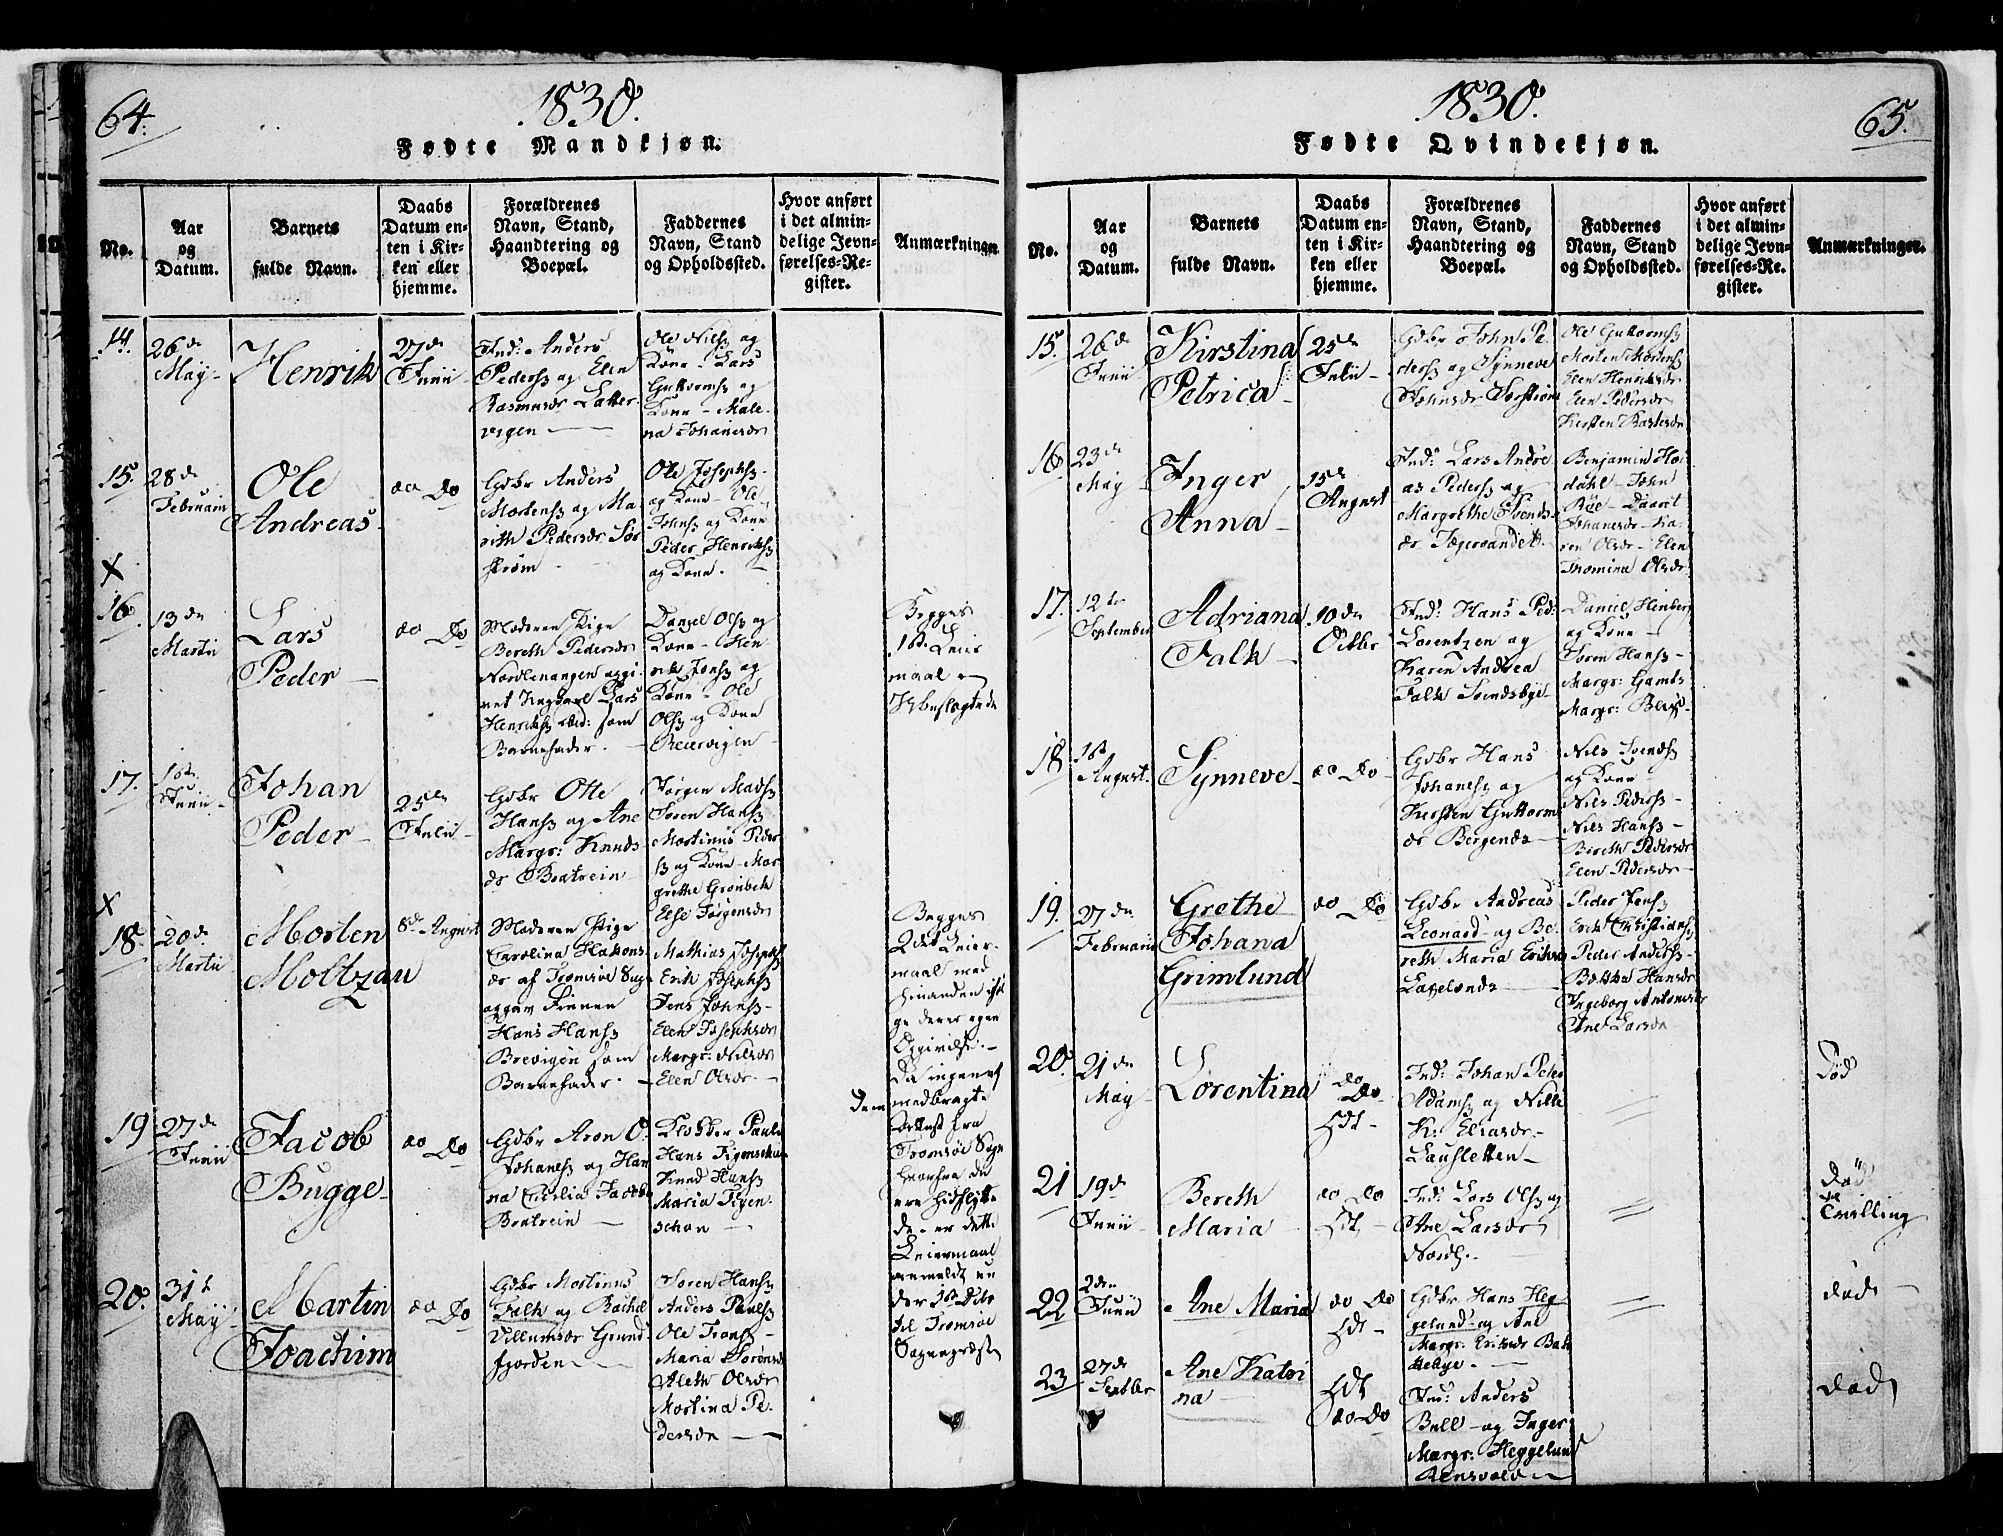 64.
1830.
Fødte Mandkjøn.
No.
Aar
og
Datum.
Barnets
fulde Navn.
Daabs
Datum en-
ten i Kir-
ken eller
hjemme.
Forældrenes
Navn, Stand,
Haandtering og
Boepæl.
Faddernes
Navn, Stand
og Opholdssted.
Hvor anført
i det almin-
delige Jevn-
førelses-Re-
gister.
Anmærkninger.
14.
26de
May
Henrik
27de
Junii
Ind: Anders
Peders og Elen
Rasmusdr Latter
vigen
Ole Niels og
Kone - Lars
Guttorms og
Kone - Male-
na Johanesdr
15.
28de
Februarii
Ole
Andreas
do Do
Gdbr Anders
Mortens og Ma-
rith Pedersdr Sør
strøm
Ole Josephs
og Kone - Ole
Johns og Kone
Peder Henriks
og Kone.
X
16.
13de
Martii
Lars
Peder
do Do
Moderen Pige
Bereth Pedersdr
Nordlenangen opgi-
vet Ungkarl Lars
Henriks som
Barnefader.
Daniel Ols og
Kone - Hen
rik Jons og
Kone - Ole
Ols og Kone
Reiervigen
Begges
1ste Leier
maal
Ubeslægtede
17.
Junii
Johan
Peder
25de
Julii
Gdbr Otte
Hans og Ane
Margr: Knuds
dr Bratrein
Jørgen Mads
Søren Hans
Martinus Peder
s og Kone - Mar
grethe Grønbek
Else Jørgensdr
X
18.
20de
Martii
Morten
Moltzau
8de August
Moderen Pige
Carolina Hakons
dr af Tromsøe Sogn
opgav
Hans Hans
Brevigen som
Barnefader.
Mathias Josephs
Erik Josephs
Jens Johns
Elen Josephsdr
Margr: Nilsdr
Elen Olsdr
Begges
2det Leier-
maal med
hinanden iføl
ge deres egen
Opgivelse. -
Da ingen af
dem medbragte
Attest fra
Tromsøe Sogn
hvorfra de
ere hidflytte
de - er dette
Leiermaal
anmeldt un
der
til Tromsøe
Sognepræst
19
27de
Junii
Jacob
Bugge
do Do
Gdbr Aron O.
Johanes og Han
na Cicilia Jacobs
Bratrein
Klokker Pauls
Hans Figenschau
Knud Hans
Maria Figen-
schou
20.
31t
May
Martin
Joachim
do Do
Gdbr Martinus
Falk og Rachel
Villumsdr Grund
fjorden
Søren Hans
Anders Pauls
Ole Frans
Maria Sørensd
Aleth Olsdr
Martina Pe-
dersdr
65.
1830.
Fødte Qvindekjøn.
No.
Aar
og
Datum.
Barnets
fulde Navn.
Daabs
Datum en-
ten i Kir-
ken eller
hjemme.
Forældrenes
Navn, Stand,
Haandtering og
Boepæl.
Faddernes
Navn, Stand
og Opholdssted.
Hvor anført
i det almin-
delige Jevn-
førelses-Re-
gister.
Anmærkninger.
15.
26de
Junii
Kirstina
Petrica
25de
Julii
Gdbr John Pe
ders og Synneve
Johnsdr Sørstrøm
Ole Guttorms
Morten Mortens
Elen Henriksdr
Elen Pedersdr
Kersten
16
23de
May
Inger
Anna
15de
August
Ind: Lars Andre
as Peders og
Margrethe Svends
dr Jægervandet.
Benjamin Hei
dahl - John
Røe - Daaret
Johanesdr - Ka-
ren Olsdr - Elen
Thomina Olsdr
17.
12te
September
Adriana
Falk
10de
Octbr
Ind: Hans Ped:
Lorentzen og
Karen Andrea
Falk Svendsbye
Daniel
og Kone
Søren Hans
Margr: Gamst
Margr: Berg
18.
1st
August
Synneve
do Do
Gdbr Hans
Johanes og
Kersten Guttorm
dr Bergende
Nils Svends
og Kone
Nils Peders
Nils Hans
Bereth Pedersdr
Elen Pedersdr
19.
27de
Februarii
Grethe
Johana
Grimlund
do Do
Gdbr Andreas
Leonard og Be-
reth Maria Eriksd
Peder Jens
Erik Christians
Peder Anders
Hansdr
Ingeborg Antonisdr
Ane Larsdr
20.
21de
May
Lorentina
do
Do
Hdt
Ind: Johan Peter
Adams og Nille
K: Eliasdr
Død
21
19de
Junii
Bereth
Maria
do Do
Hdt
Ind: Lars Ols og
Ane Larsdr
død
Tvilling
22
2den
Junii
Ane Maria
do Do
Hdt
Gdbr Hans Heg
gelund og Ane
Margr: Eriksdr Bak
kebye
død
23
27de
Septbr
Ane Katri
na
Hdt
do Do
Ind: Anders
Bull og Inger
Margr: Heggelund
død